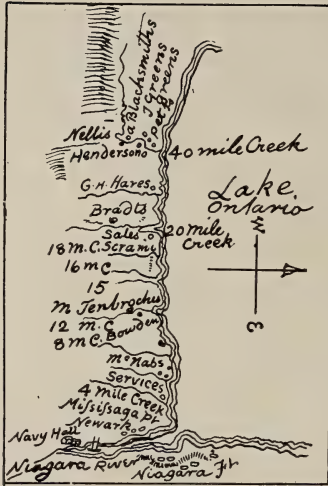 a Blacksmiths
J Greens
Pet Greens
Nellis
Henderson
40 mile Creek
G. H. Hares
Lake
Ontario
Bradts
Sales
20 Mile
Creek
18 M. C. Scram
16 m C
15
M Tenbrochus
12 m. C
8 m C. Bowden
McNabs
Services
4 Mile Creek
Missisaga Pt
Newark
Navy Hall
Niagara River
Niagara Ft